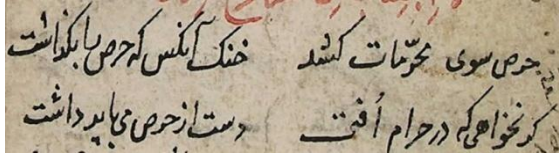 حرص سوی محرّمات کشد خنک آنکس که حرص را بگذاشت
کر نخواهی که در حرام اُفتی دست از حرص می باید داشت